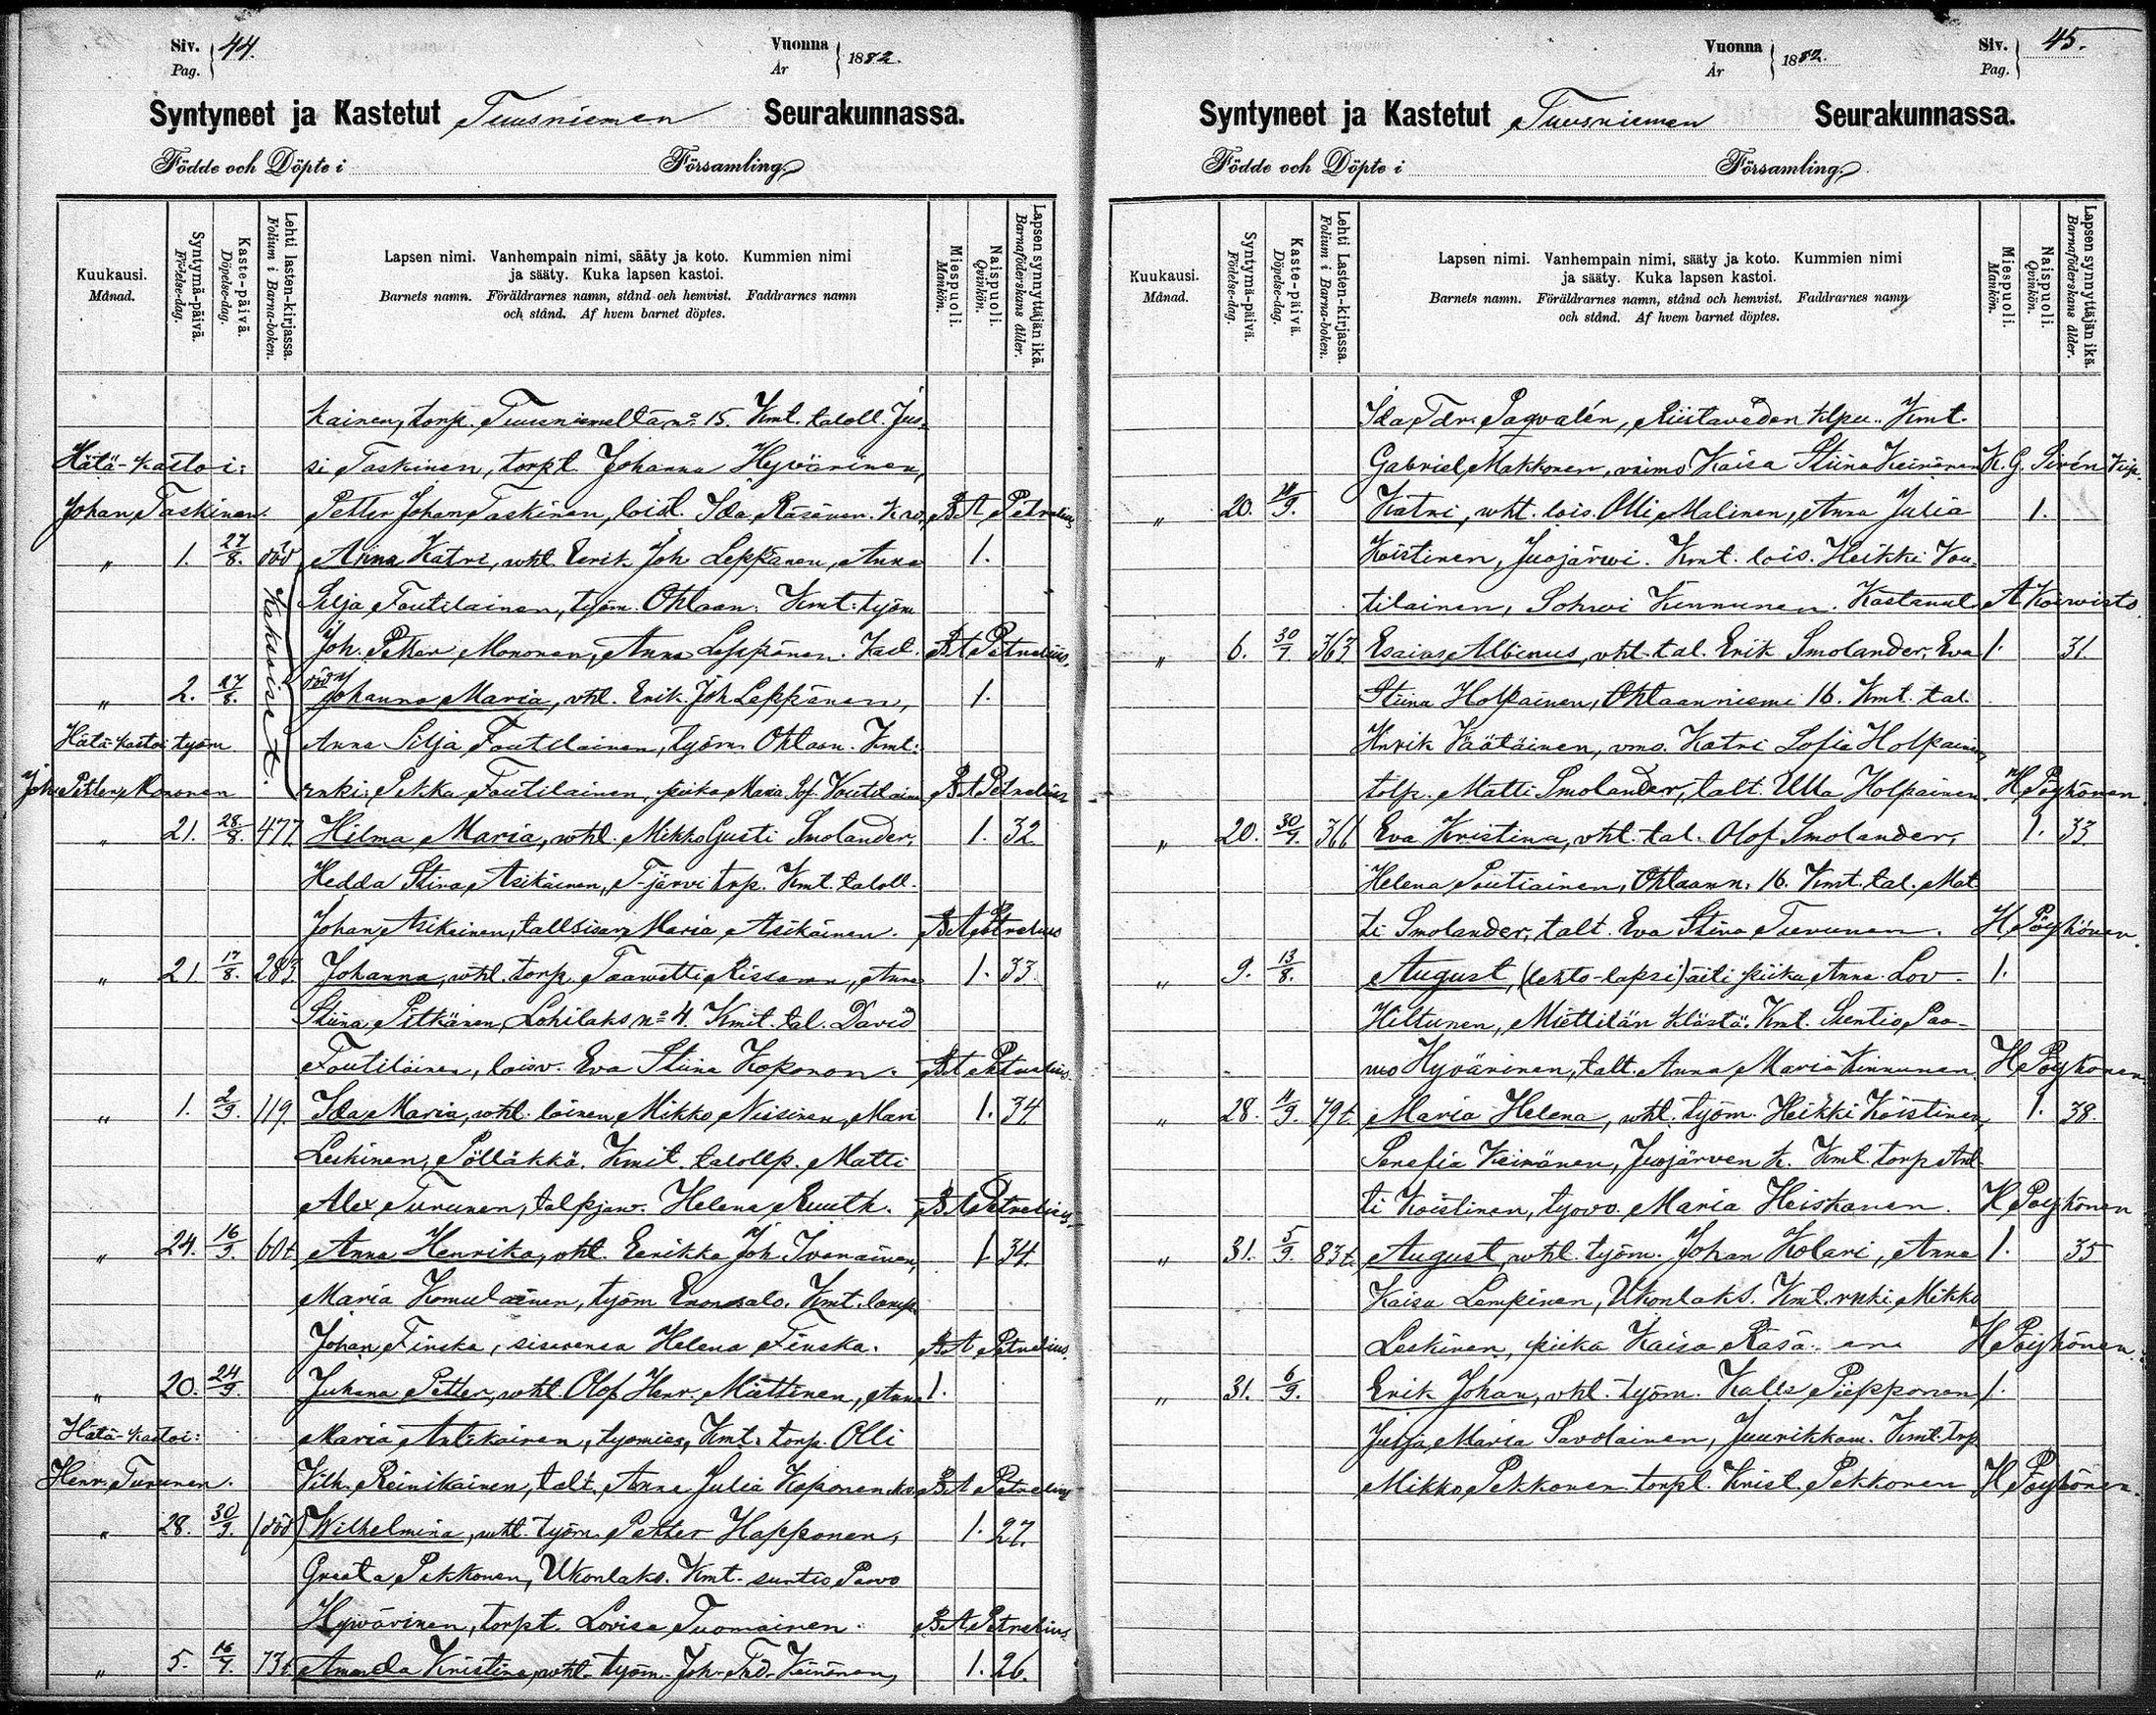 Siv. 44. Vuonna 1882.
Pag. År
Syntyneet ja Kastetut Tuusniemen Seurakunnassa.
Födde och Döpte i Församling.
Kuukausi. Månad.
Syntymä-päivä. Födelse-dag.
Kaste-päivä. Döpelse-dag.
Lehti lasten-kirjassa. Folium i Barna-boken.
Lapsen nimi. Vanhempain nimi, sääty ja koto. Kummien nimi
ja sääty. Kuka lapsen kastoi.
Barnets namn. Föräldrarnes namn, stånd och hemvist. Faddrarnes namn
och stånd. Af hvem barnet döptes.
Miespuoli. Mankön.
Naispuoli. Qvinkön.
Lapsen synnyttäjän ikä. Barnaföderskans ålder.
kainen, torp. Tuusniemeltä no 15. Kmt. taloll. Jus-
Hätä-kastoi: si Taskinen, torpt. Johanna Hyvärinen,
Johan Taskinen. Petter Johan Taskinen, loist. Ida Räsänen. B A Petrelius
" 1. 27/8. död Anna Katri, vht. Eerik Joh Leppänen, Anna 1.
Kaksoiset.
Silja Toutilainen, työm. Ohtaan. Kmt. työm
Joh. Petter Mononen, Anna Leppänen. Kast. B A Petrelius.
" 2. 27/8. död Johanna Maria, vht. Erik Joh Leppänen, 1.
Hätä-kastoi työm Anna Silja Toutilainen, työm. Ohtaan. Kmt:
Joh. Petter Mononen renki. Pekka Toutilainen, piika Maria Sof. Voutilainen B A Petrelius
" 21. 28/8. 477. Hilma Maria, vht. Mikko Gusti Smolander, 1. 32.
Hedda Stina Asikainen, T-järvi trp. Kmt. taloll.
Johan Asikainen, Maria Asikainen. B A Petrelius
" 21. 17/8. 283. Johanna, vht. torp. Taavetti Rissanen, Anna 1. 33.
Stiina Pitkänen, Lohilaks no 4. Kmt. tal. David
Toutilainen, loisv. Eva Stiina Koponen. B A Petrelius.
" 1. 2/9. 119. Ida Maria, vht. loinen Mikko Nissinen, Mari 1. 34.
Leskinen, Pölläkkä. Kmt. talollp. Matti
Alex Turunen, Helena Ruuth. B A Petrelius,
" 24. 16/9. 60t. Anna Henrika, vht. Eerikki Joh. Ivanainen, 1. 34.
Maria Komulainen, työm Enonsalo. Kmt. lamp.
Johan Finska, sisarensa Helena Finska. B A Petrelius.
" 20. 24/9. Juhana Petter, vht. Olof Henr. Miettinen, Anna 1.
Hätä-kastoi: Maria Antikainen, työmies, Kmt. torp. Olli
Henr. Turunen. Vilh. Reinikainen, talt. Anna Julia Koponen. B A Petrelius
" 28. 30/9. (död) Wilhelmina, vht. työm. Petter Happonen, 1. 27.
Greeta Pekkonen, Ukonlaks. Kmt. suntio Paavo
Hyvärinen, torpt. Lovisa Tuomainen. B A Petrelius
" 5. 16/7. 73t. Amanda Kristina, vht. työm. Joh. Fred. Keinänen, 1. 26.
Vuonna 1882. Siv. 45.
År Pag.
Syntyneet ja Kastetut Tuusniemen Seurakunnassa.
Födde och Döpte i Församling.
Kuukausi. Månad.
Syntymä-päivä. Födelse-dag.
Kaste-päivä. Döpelse-dag.
Lehti Lasten-kirjassa. Folium i Barna-boken.
Lapsen nimi. Vanhempain nimi, sääty ja koto. Kummien nimi
ja sääty. Kuka lapsen kastoi.
Barnets namn. Föräldrarnes namn, stånd och hemvist. Faddrarnes namn
och stånd. Af hvem barnet döptes.
Miespuoli. Mankön.
Naispuoli. Qvinkön.
Lapsen synnyttäjän ikä. Barnaföderskans ålder.
Ida Fdr. Pagvalén, Riistaveden klpu.. Kmt.
Gabriel Makkonen, vaimo Kaisa Stiina Keinänen K. G. Sirén
" 20. Katri, vht. lois. Olli Malinen, Anna Julia 1.
Koistinen, Juojärwi. Kmt. lois. Heikki Vou-
tilainen, Sohwi Kinnunen. Kastanut A Koivisto
" 6. 30/7. 363 Esaias Albinus, vht. tal. Erik Smolander, Eva 1. 31.
Stiina Holpainen, Ohtaanniemi 16. Kmt. tal.
Henrik Väätäinen, vmo. Katri Sofia Holpainen,
tolp. Matti Smolander, talt. Ulla Holpainen. H Pöyhönen.
" 20. 30/7. 366 Eva Kristina, vht. tal. Olof Smolander, 1. 33.
Helena Poutiainen, Ohtaann. 16. Kmt. tal. Mat
ti Smolander, talt. Eva Stina Turunen. H Pöyhönen.
" 9. 13/8. August, (lehto-lapsi) äiti piika Anna Lov- 1.
Hiltunen, Miettilän klästä. Kmt. Suntio Paa-
wo Hyvärinen, talt. Anna Maria Kinnunen. H Pöyhönen
" 28. 11/9. 79t. Maria Helena, vht. työm. Heikki Koistinen, 1. 38.
Serefia Keinänen, Juojärven k. Kmt. torp Ant-
ti Koistinen, työvo. Maria Heiskanen. H Pöyhönen
" 31. 5/9. 83t. August, vht. työm. Johan Kolari, Anna 1. 35
Kaisa Lempinen, Ukonlaks. Kmt. rnki. Mikko
Leskinen, piika Kaisa Räsä- H Pöyhönen.
" 31. 6/9. Erik Johan, vht. työm. Kalle Piipponen 1.
Julja Maria Savolainen, Juurikkam. Kmt. trp
Mikko Pekkonen torpt. Krist. Pekkonen H Pöyhönen.